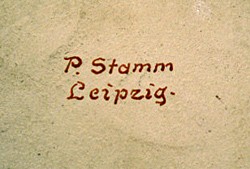 P. Stamm
Leipzig.